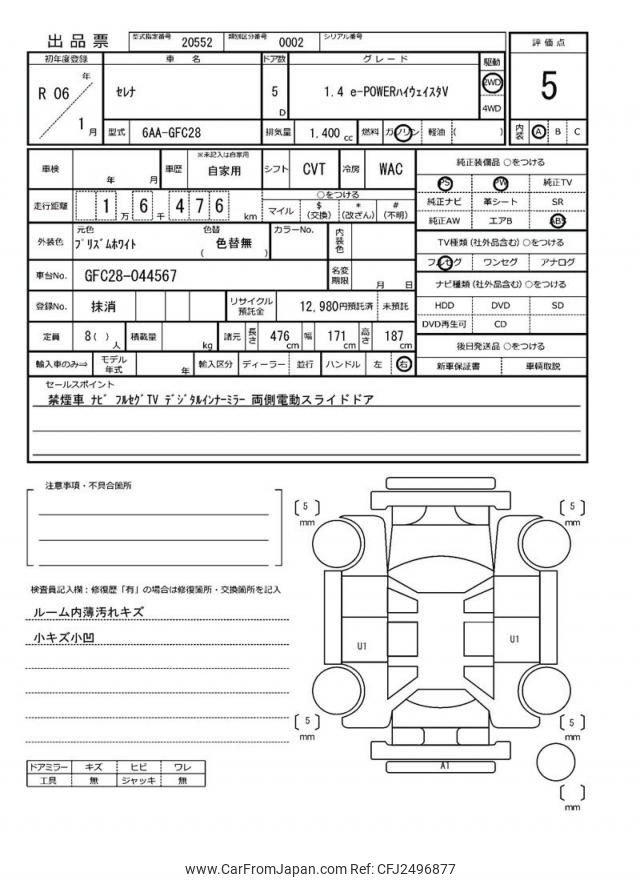 出品票
型式指定番号 20552 類別区分番号 0002 シリアル番号
初年度登録 車名 ドア数 グレード 駆動 評価点
R 06 年 1 月
ｾﾚﾅ 5 D 1.4 e-POWERﾊｲｳｪｲｽﾀV 2WD 4WD 5
型式 6AA-GFC28 排気量 1,400 cc 燃料 ガソリン 軽油 ( ) 内装 A B C
車検 年 月 車歴 ※未記入は自家用 自家用 シフト CVT 冷房 WAC
走行距離 1 万 6 千 4 7 6 km ○をつける マイル $ (交換) * (改ざん) # (不明)
外装色 元色 ﾌﾟﾘｽﾞﾑﾎﾜｲﾄ 色替 ( 色替無 ) カラーNo. 内装色
車台No. GFC28-044567 名変期限 月 日
登録No. 抹消 リサイクル預託金 12,980円預託済 未預託
定員 8 ( ) 人 積載量 kg 諸元 長さ 476 cm 幅 171 cm 高さ 187 cm
輸入車のみ⇒ モデル年式 年 輸入区分 ディーラー 並行 ハンドル 左 右
純正装備品 ○をつける
PS PW 純正TV
純正ナビ 革シート SR
純正AW エアB ABS
TV種類 (社外品含む) ○をつける
フルセグ ワンセグ アナログ
ナビ種類 (社外品含む) ○をつける
HDD DVD SD
DVD再生可 CD
後日発送品 ○をつける
新車保証書 車輌取説
セールスポイント
禁煙車 ﾅﾋﾞ ﾌﾙｾｸﾞTV ﾃﾞｼﾞﾀﾙｲﾝﾅｰﾐﾗｰ 両側電動スライドドア
注意事項・不具合箇所
検査員記入欄：修復歴「有」の場合は修復箇所・交換箇所を記入
ルーム内薄汚れキズ
小キズ小凹
ドアミラー キズ ヒビ ワレ
工具 無 ジャッキ 無
5 mm
5 mm
U1
U1
5 mm
5 mm
A1
mm
www.CarFromJapan.com Ref: CFJ2496877